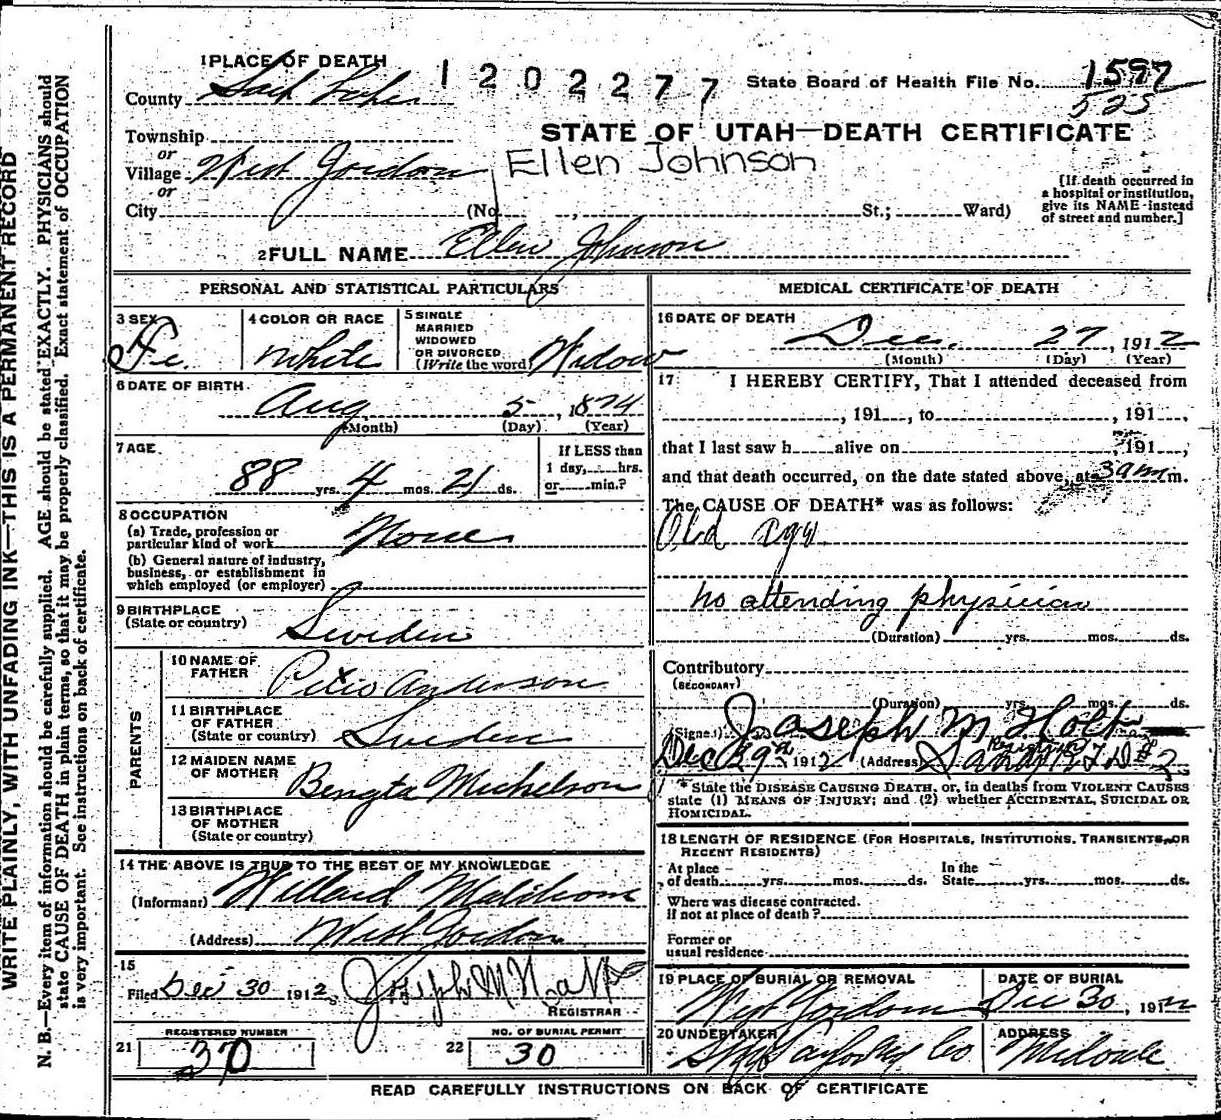 WRITE PLAINLY, WITH UNFADING INK—THIS IS A PERMANENT RECORD
N. B.—Every item of information should be carefully supplied. AGE should be stated EXACTLY. PHYSICIANS should
state CAUSE OF DEATH in plain terms, so that it may be properly classified. Exact statement of OCCUPATION
is very important. See instructions on back of certificate.
1 PLACE OF DEATH
1202277
State Board of Health File No. 1597
525
County Salt Lake
STATE OF UTAH—DEATH CERTIFICATE
Township
or
Village West Jordan
Ellen Johnson
or
City (No. , St.; Ward)
[If death occurred in
a hospital or institution,
give its NAME instead
of street and number.]
2 FULL NAME Ellen Johnson
PERSONAL AND STATISTICAL PARTICULARS
3 SEX
Fe.
4 COLOR OR RACE
White
5 SINGLE
MARRIED
WIDOWED
OR DIVORCED
(Write the word) Widow
6 DATE OF BIRTH
Aug 5, 1824
(Month) (Day) (Year)
7 AGE
88 yrs. 4 mos. 21 ds.
If LESS than
1 day, hrs.
or min.?
8 OCCUPATION
(a) Trade, profession or
particular kind of work None
(b) General nature of industry,
business, or establishment in
which employed (or employer)
9 BIRTHPLACE
(State or country) Sweden
PARENTS
10 NAME OF
FATHER Anderson
11 BIRTHPLACE
OF FATHER
(State or country) Sweden
12 MAIDEN NAME
OF MOTHER Bengta Michelson
13 BIRTHPLACE
OF MOTHER
(State or country)
14 THE ABOVE IS TRUE TO THE BEST OF MY KNOWLEDGE
(Informant) Willard
(Address) West Jordan
15
Filed Dec 30 1912, Joseph M
REGISTRAR
REGISTERED NUMBER
21 30
NO. OF BURIAL PERMIT
22 30
MEDICAL CERTIFICATE OF DEATH
16 DATE OF DEATH
Dec. 27, 1912
(Month) (Day) (Year)
17 I HEREBY CERTIFY, That I attended deceased from
, 191 , to , 191 ,
that I last saw h alive on , 191 ,
and that death occurred, on the date stated above, at 3 am m.
The CAUSE OF DEATH* was as follows:
Old age
no attending physician
(Duration) yrs. mos. ds.
Contributory
(SECONDARY)
(Duration) yrs. mos. ds.
(Signed) Joseph M. Holt
Registrar
Dec 1912 (Address) Sandy
* State the DISEASE CAUSING DEATH, or, in deaths from VIOLENT CAUSES
state (1) MEANS OF INJURY; and (2) whether ACCIDENTAL, SUICIDAL OR
HOMICIDAL.
18 LENGTH OF RESIDENCE (FOR HOSPITALS, INSTITUTIONS, TRANSIENTS, OR
RECENT RESIDENTS)
At place
of death yrs. mos. ds.
In the
State yrs. mos. ds.
Where was disease contracted.
if not at place of death?
Former or
usual residence
19 PLACE OF BURIAL OR REMOVAL
West Jordan
DATE OF BURIAL
Dec 30, 1912
20 UNDERTAKER
Co
ADDRESS
Midvale
READ CAREFULLY INSTRUCTIONS ON BACK OF CERTIFICATE